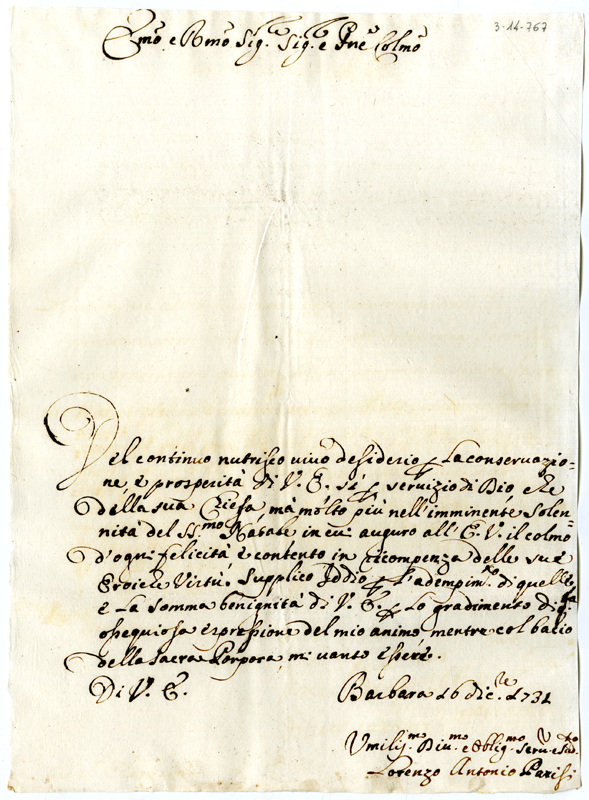 3-14-767
Emo e Rmo Sig.re Sig.re e Pne Colmo
Del continuo nutrisco vivo desiderio p la conservazio=
ne, e prosperità di V. E. sì p servizio di Dio, che
della sua Chiesa, mà molto più nell'imminente Solen=
nità del SS.mo Natale in cui auguro all'E. V. il colmo
d'ogni felicità, e contento in ricompenza delle sue
Eroiche Virtù. Supplico Iddio p l'adempim.to di quelle,
e la somma benignità di V. E. p lo gradimento di
ossequiosa espressione del mio animo, mentre col bacio
della Sacra Porpora, mi vanto essere.
Di V. E.
Barbara 16 Dic.re 1731
Umiliss.mo Div.mo e Oblig.mo Serv.e
Lorenzo Antonio Parisi